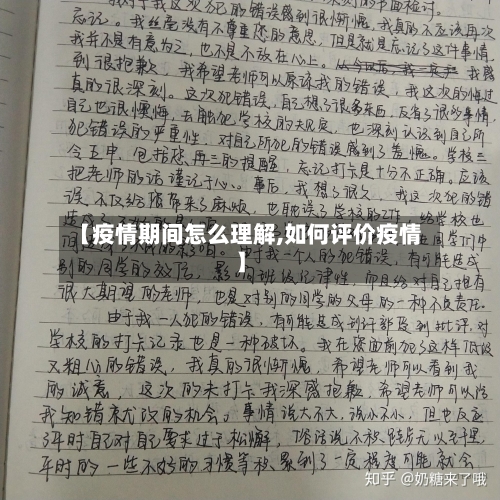 对于我这次犯的错误感到很惭愧,我真的不应该再次
忘记。我丝毫没有不尊重您的意思,但是就是忘记了这件事情,
我并不是有意为之,也不是不放在心上。我感
到很抱歉,我希望老师可以原谅我的错误,我这次的悔过
真的很深刻。这次犯错误,自己想了很多东西,反省了很多事情,
自己也很懊悔,去触犯学校的 也深刻认识到自己所
犯错误的严重性,对自己所犯的错误感到了羞愧。学校三
令五申,包括您再三的提醒,忘记打卡是十分不正确。应该
把老师的话谨记于心。事后,我想了很久,我这次犯的错
误,不仅给 带来了麻烦,也耽误了学校的工作
【疫情期间怎么理解,如何评价疫情
】
别的同学的效仿,影响班级纪律性,而且给对自己抱有
很大期望的老师,也是对别的同学的父母的一种不负责任。
由于我一人犯的错误,有可能造成 受到批评,对
学校的打卡记录也是一种破坏。我在您面前犯了这样低级
又粗心的错误,我真的很惭愧,希望老师可以看到我
的诚意,这次的未打卡我深感抱歉,希望老师可以给
我知错就改的机会。事情说大不大,说小不小,但也反应
了平时自己对自己要求过于松懈,俗话说不积跬步无以至千里,
平时的一些不好的习惯等积累到了一定程度可能就会
知乎 @奶糖来了哦